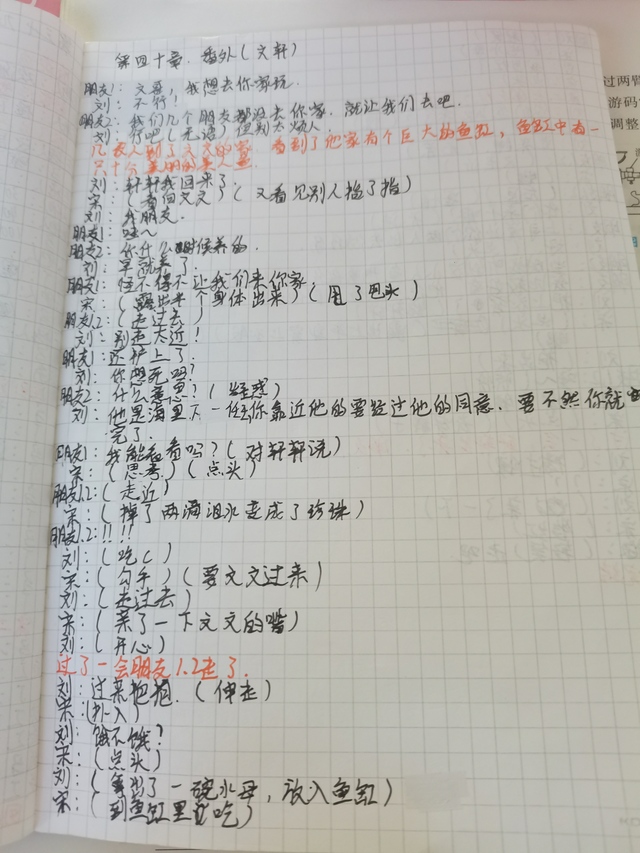 第四十章. 番外(文轩)
朋友1: 文哥, 我想去你家玩.
刘: 不行!
朋友2: 我们几个朋友都没去你家. 就让我们去吧.
刘: 行吧(无语) 但别太烦人
几人到了文文的家. 看到了他家有个巨大的鱼缸, 鱼缸中有一
只十分美丽的美人鱼.
刘: 轩轩我回来了.
宋: (看向文文) (又看见别人指了指)
刘: 我朋友.
朋友1: 哇~
朋友2: 你什么时候养的.
刘: 早就养了.
朋友1: 怪不得不让我们来你家
宋: (露出半个身体出来) (甩了甩头)
朋友1.2: (走过去)
刘: 别走太近!
朋友1: 还护上了.
刘: 你想死吗?
朋友2: 什么意思? (疑惑)
刘: 他是海里下一任你靠近他的要经过他的同意. 要不然你就
完了.
朋友1: 我能看看吗? (对轩轩说)
宋: (思考) (点头)
朋友1.2: (走近)
宋: (掉了两滴泪水变成了珍珠)
朋友1.2: !!!
刘: (吃C)
宋: (勾手) (要文文过来)
刘: (走过去)
宋: (亲了一下文文的嘴)
刘: (开心)
过了一会朋友1.2走了.
刘: 过来抱抱. (伸走)
宋: (扑入)
刘: 饿不饿?
宋: (点头)
刘: (拿出了一碗水母, 放入鱼缸)
宋: (到鱼缸里吃)
过两臂
游码
调整